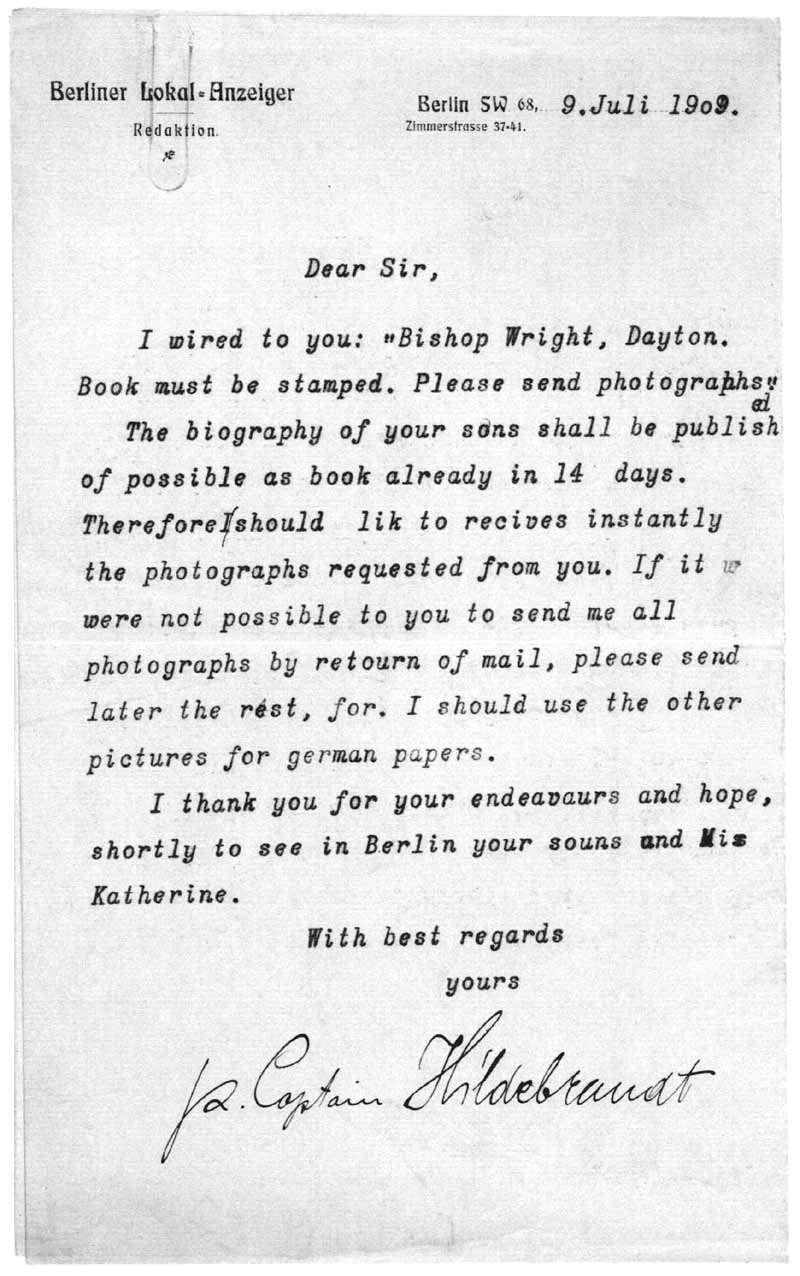 Berliner Lokal=Anzeiger
Redaktion.
Berlin SW 68, 9.Juli 1909.
Zimmerstrasse 37-41.
Dear Sir,
I wired to you: "Bishop Wright, Dayton.
Book must be stamped. Please send photographs"
ed
The biography of your sons shall be publish
of possible as book already in 14 days.
Therefore I should lik to recives instantly
the photographs requested from you. If it w
were not possible to you to send me all
photographs by retourn of mail, please send
later the rést, for. I should use the other
pictures for german papers.
I thank you for your endeavaurs and hope,
shortly to see in Berlin your souns and Mis
Katherine.
With best regards
yours
Captain Hildebrandt